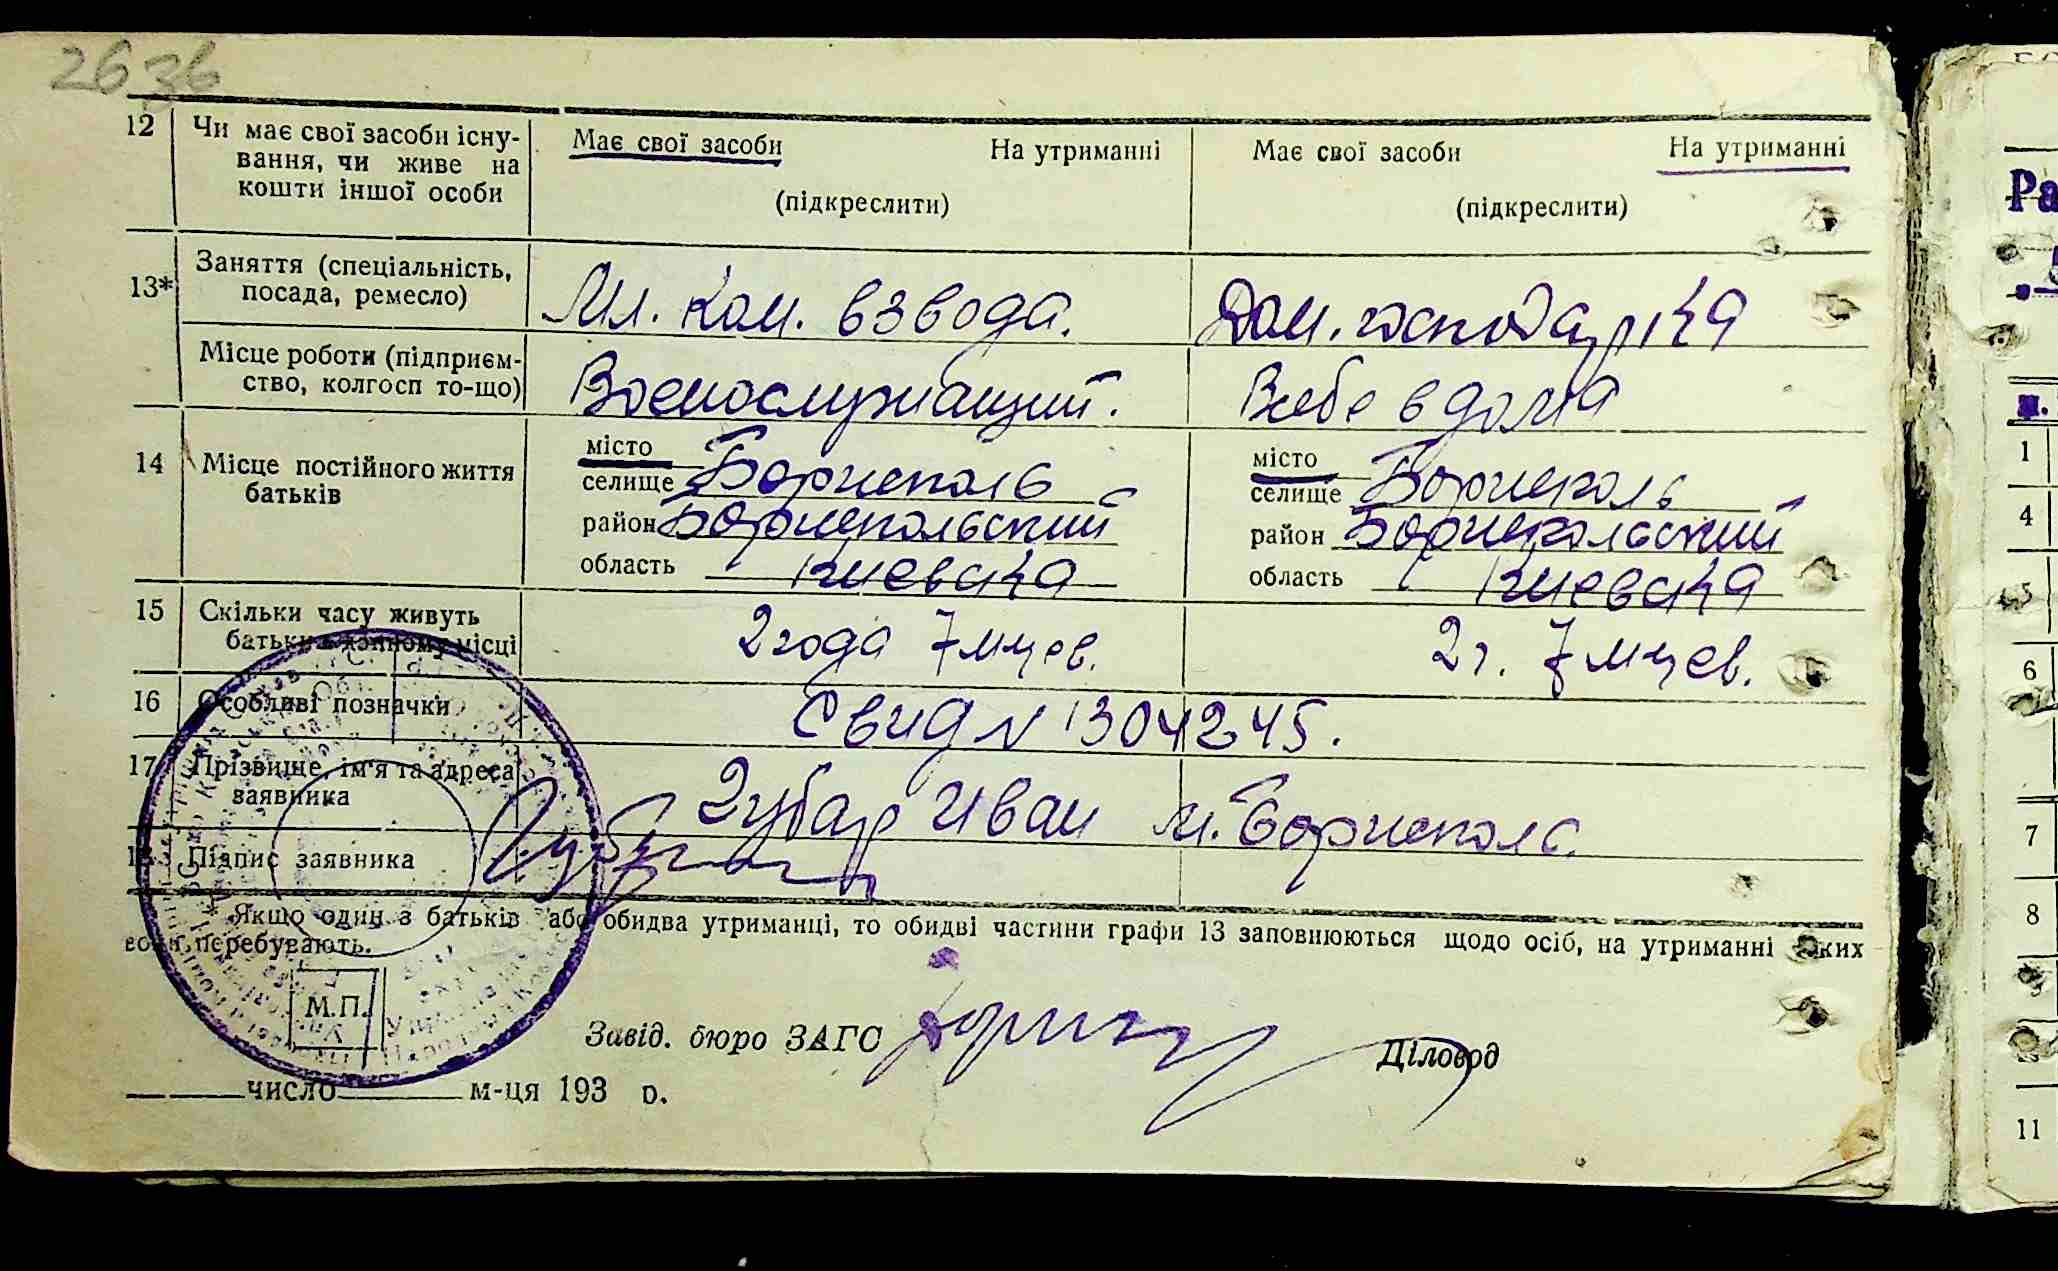 26 зб
12 Чи має свої засоби існу- Має свої засоби На утриманні Має свої засоби На утриманні
вання, чи живе на
кошти іншої особи (підкреслити) (підкреслити)
13* Заняття (спеціальність,
посада, ремесло) Мл. ком. взвода. Дом. господарка
Місце роботи (підприєм-
ство, колгосп то-що) Военослужащий. В себе в дома
14 Місце постійного життя місто Бориеполь місто Бориеполь
батьків селище селище
район Бориепольский район Бориепольский
область Киевска область Киевска
15 Скільки часу живуть 2 года 7 мцев. 2 г. 7 мцев.
батьки в данному місці
16 Особливі позначки Свид N 1304245.
17 Прізвище, ім'я та адреса Зубар Иван м. Бориеполь.
заявника
18 Підпис заявника
* Якщо один з батьків або обидва утриманці, то обидві частини графи 13 заповнюються щодо осіб, на утриманні яких
вони перебувають.
М.П.
Завід. бюро ЗАГС Діловод
число м-ця 193 р.
Ра
1
4
5
6
7
8
9
11